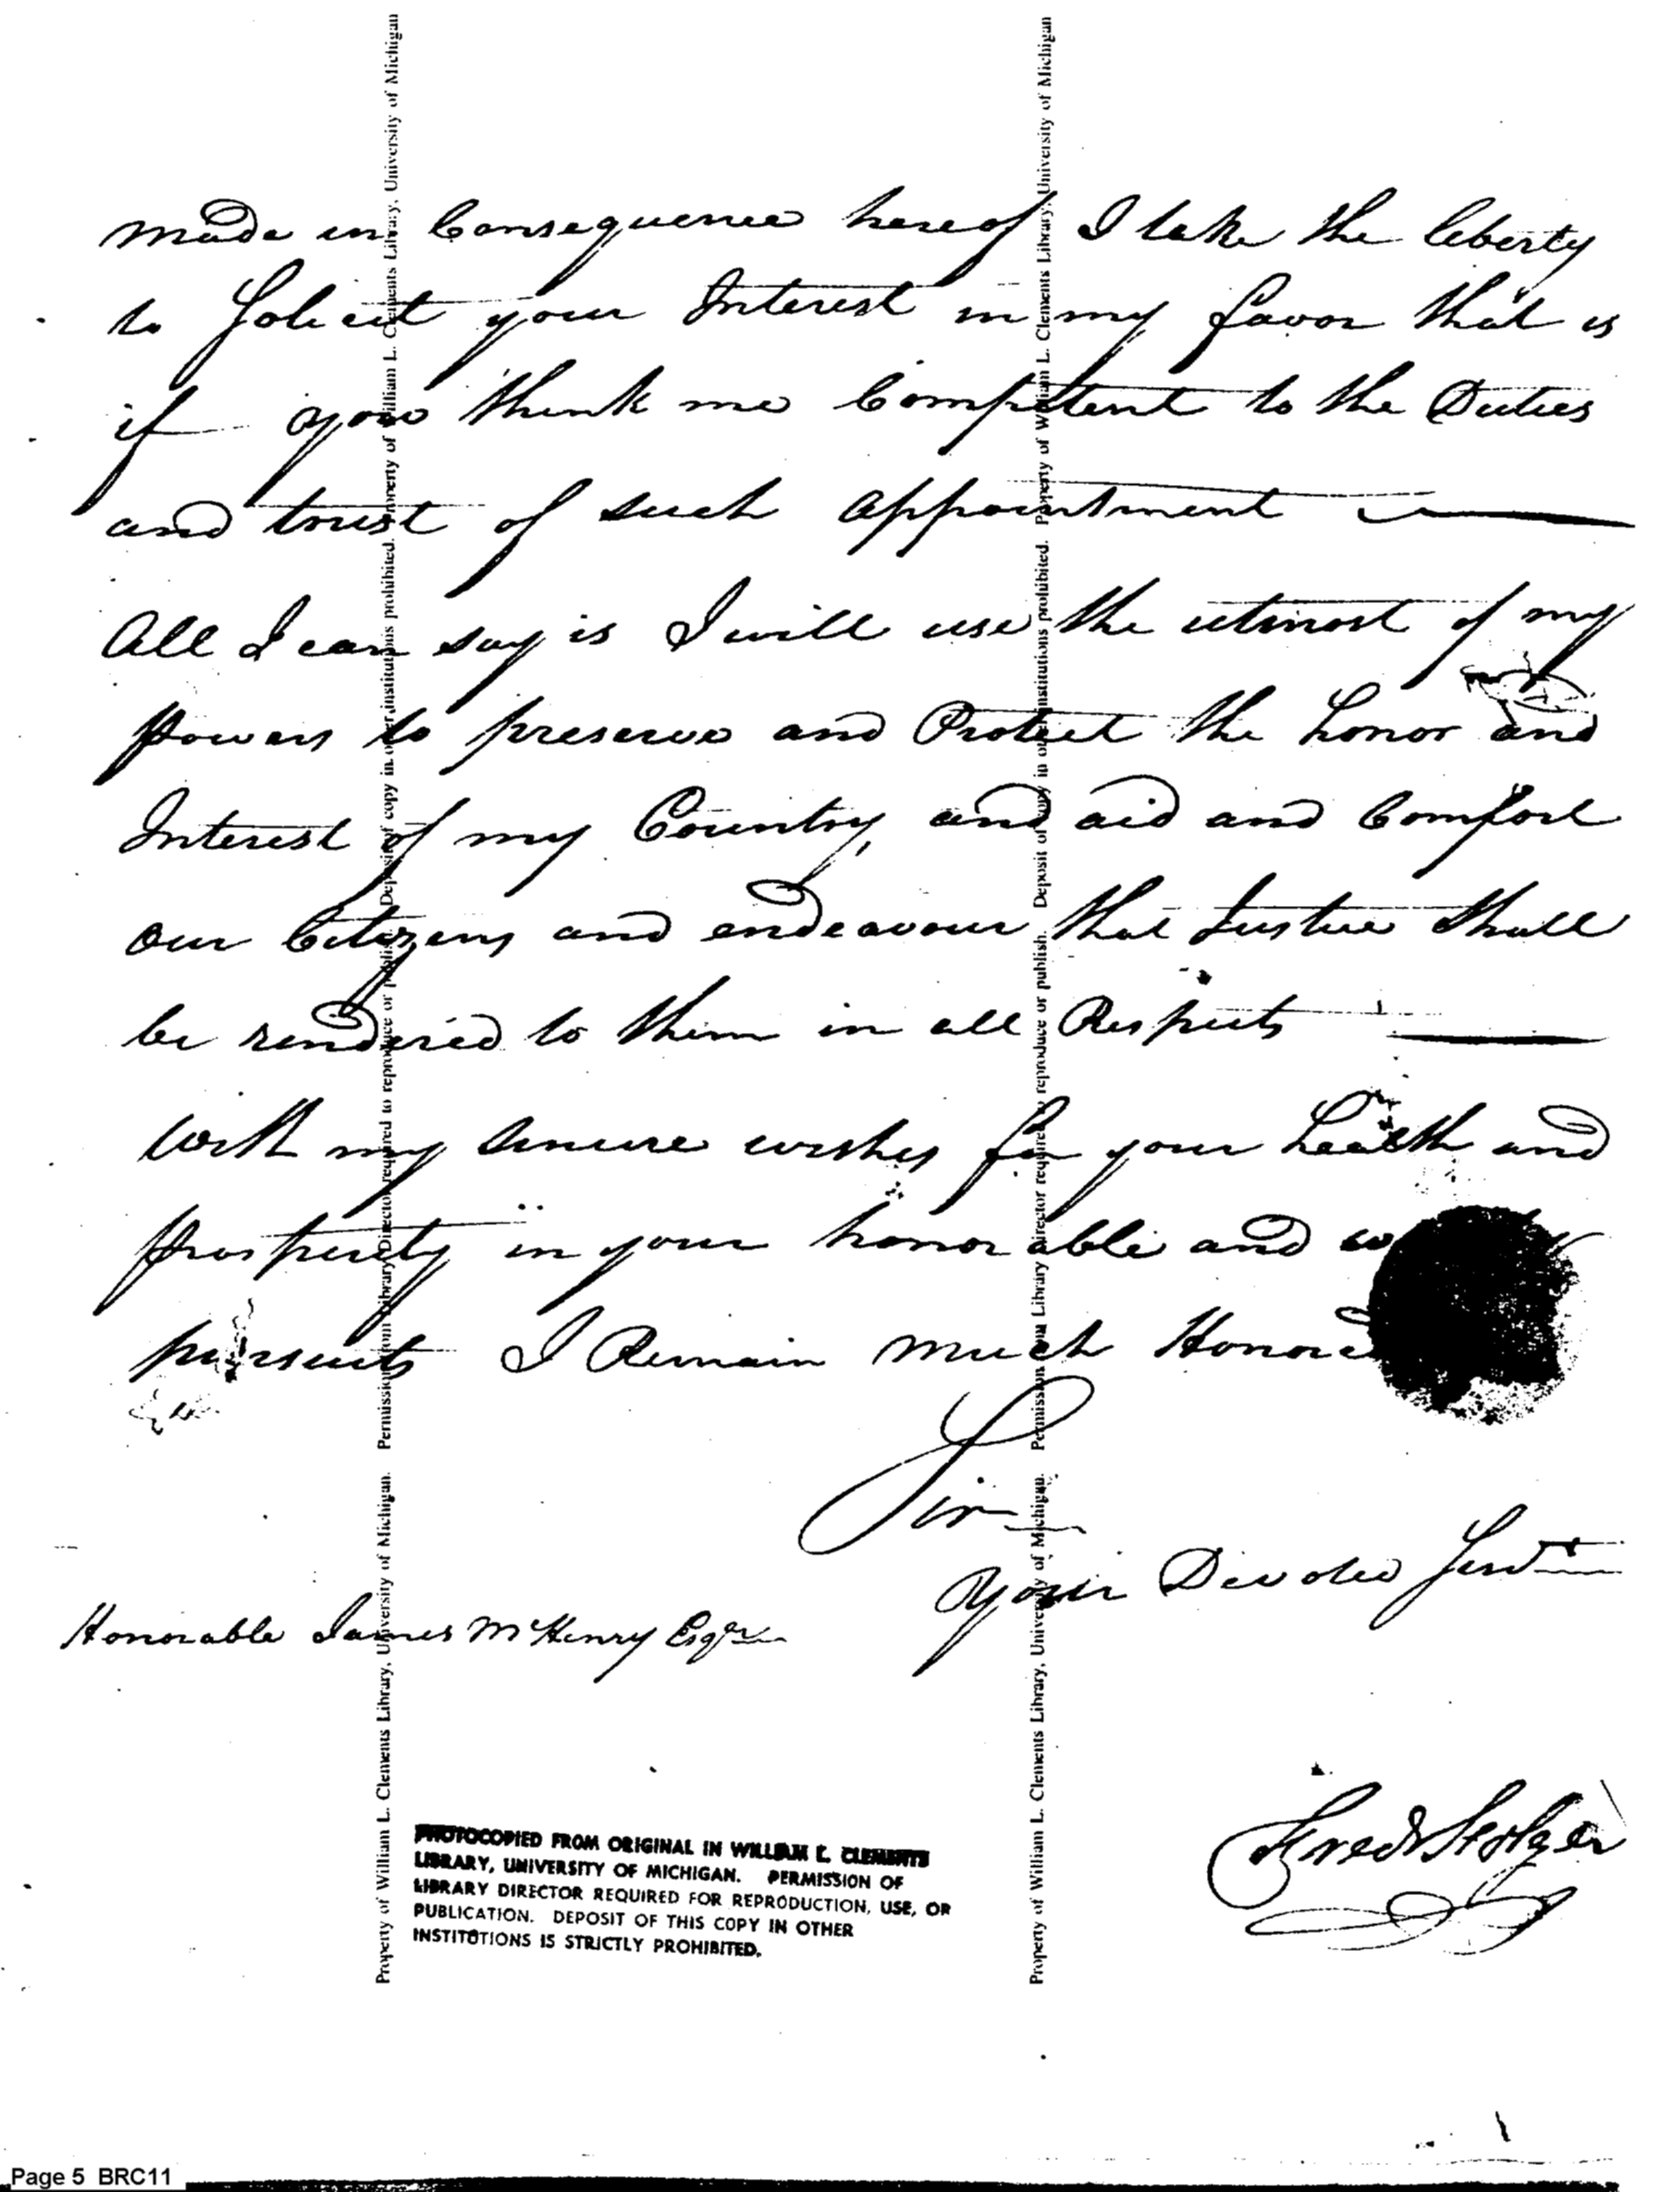 made in Consequence hereof I take the liberty
to Solicit your Interest in my favor that is
if you think me Competent to the Duties
and trust of such appointment
All I can say is I will use the utmost of my
powers to preserve and Protect the honor and
Interest of my Country, and aid and Comfort
our Citizens and endeavour that Justice shall
be rendered to them in all Respects
With my sincere wishes for your health and
prosperity in your honorable and
pursuits I Remain much Honored
Sir
Your Devoted Servt
Honorable James McHenry Esqr
Fred
PHOTOCOPIED FROM ORIGINAL IN WILLIAM L. CLEMENTS
LIBRARY, UNIVERSITY OF MICHIGAN. PERMISSION OF
LIBRARY DIRECTOR REQUIRED FOR REPRODUCTION, USE, OR
PUBLICATION. DEPOSIT OF THIS COPY IN OTHER
INSTITUTIONS IS STRICTLY PROHIBITED.
Property of William L. Clements Library, University of Michigan. Permission from Library Director required to reproduce or publish. Deposit of copy in other institutions prohibited. Property of William L. Clements Library, University of Michigan
Property of William L. Clements Library, University of Michigan. Permission from Library Director required to reproduce or publish. Deposit of copy in other institutions prohibited. Property of William L. Clements Library, University of Michigan
Page 5 BRC11